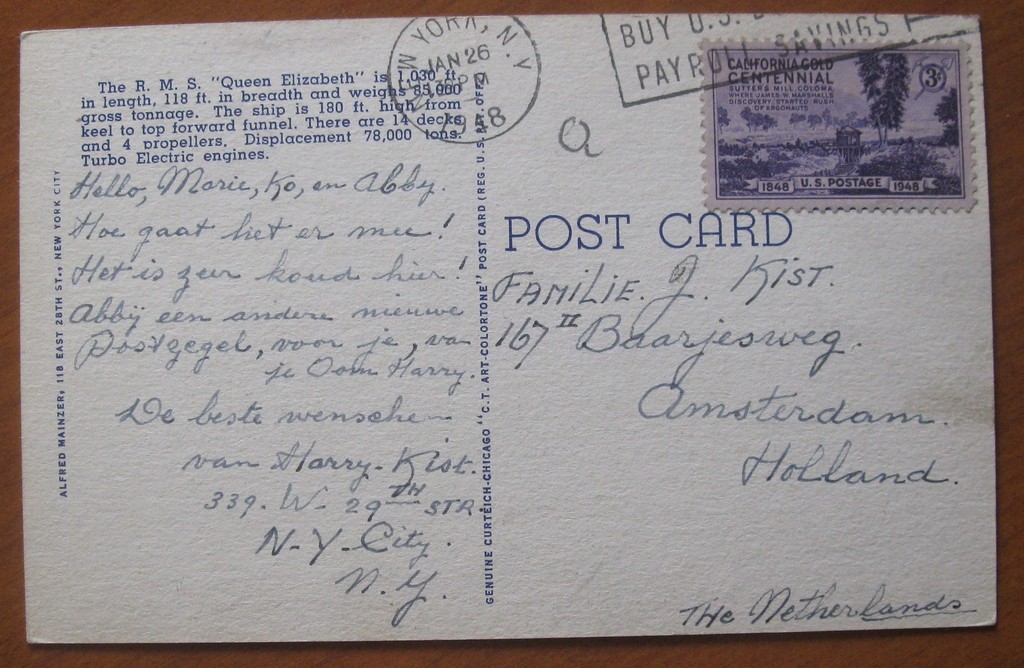 The R. M. S. "Queen Elizabeth" is 1,030 ft.
in length, 118 ft. in breadth and weighs 85,000
gross tonnage. The ship is 180 ft. high from
keel to top forward funnel. There are 14 decks
and 4 propellers. Displacement 78,000 tons.
Turbo Electric engines.
Hello, Marie, Ko, en Abby.
Hoe gaat het er mee!
Het is zeer koud hier!
Abbij een andere nieuwe
Postzegel, voor je, va
je Oom Harry.
De beste wensche
van Harry-Kist.
339. W- 29TH STR.
N-Y-City.
N.Y.
ALFRED MAINZER, 118 EAST 28TH ST., NEW YORK CITY
GENUINE CURTEICH-CHICAGO "C.T. ART-COLORTONE" POST CARD (REG. U.S. PAT. OFF.)
YORK, N.Y
JAN 26
PM
BUY U.S.
PAYROLL SAVINGS
CALIFORNIA GOLD
CENTENNIAL
SUTTER'S MILL, COLOMA
WHERE JAMES W. MARSHALL'S
DISCOVERY STARTED RUSH
OF ARGONAUTS
3¢
1848 U.S. POSTAGE 1948
a
POST CARD
FAMILIE. J. Kist.
167 II Baarjesweg.
Amsterdam.
Holland.
THe Netherlands